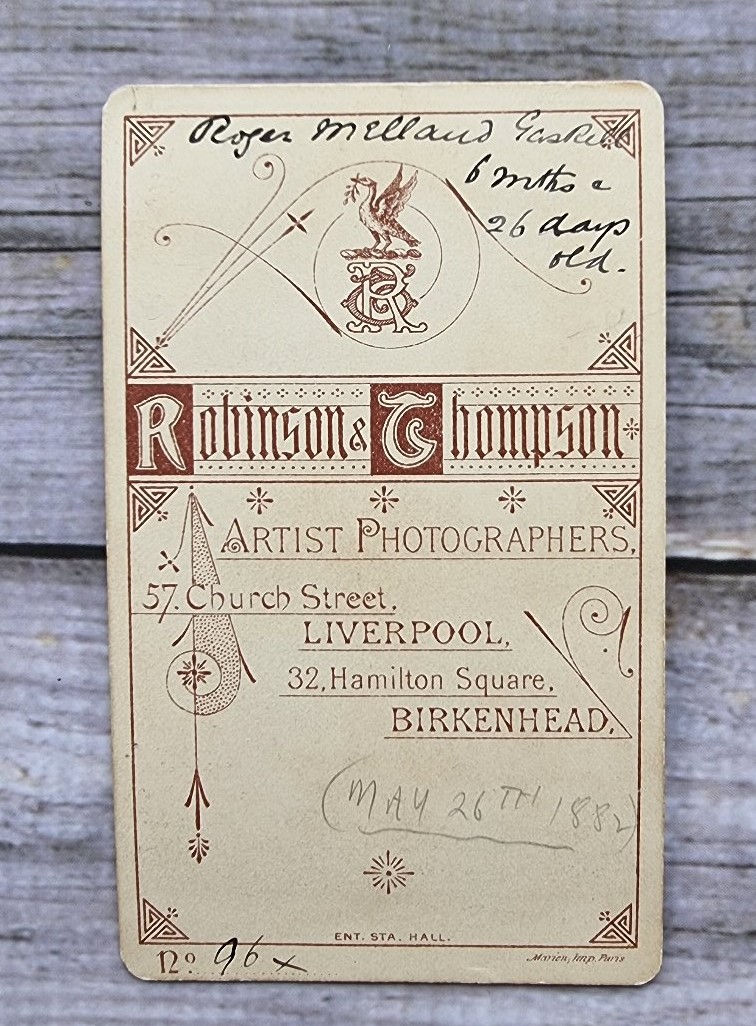 Roger Melland Gaskell
6 mths &
26 days
old.
Robinson & Thompson
ARTIST PHOTOGRAPHERS,
57. Church Street,
LIVERPOOL,
32, Hamilton Square,
BIRKENHEAD,
(MAY 26TH 1882)
ENT. STA. HALL.
No. 96 x
Marion, Imp. Paris